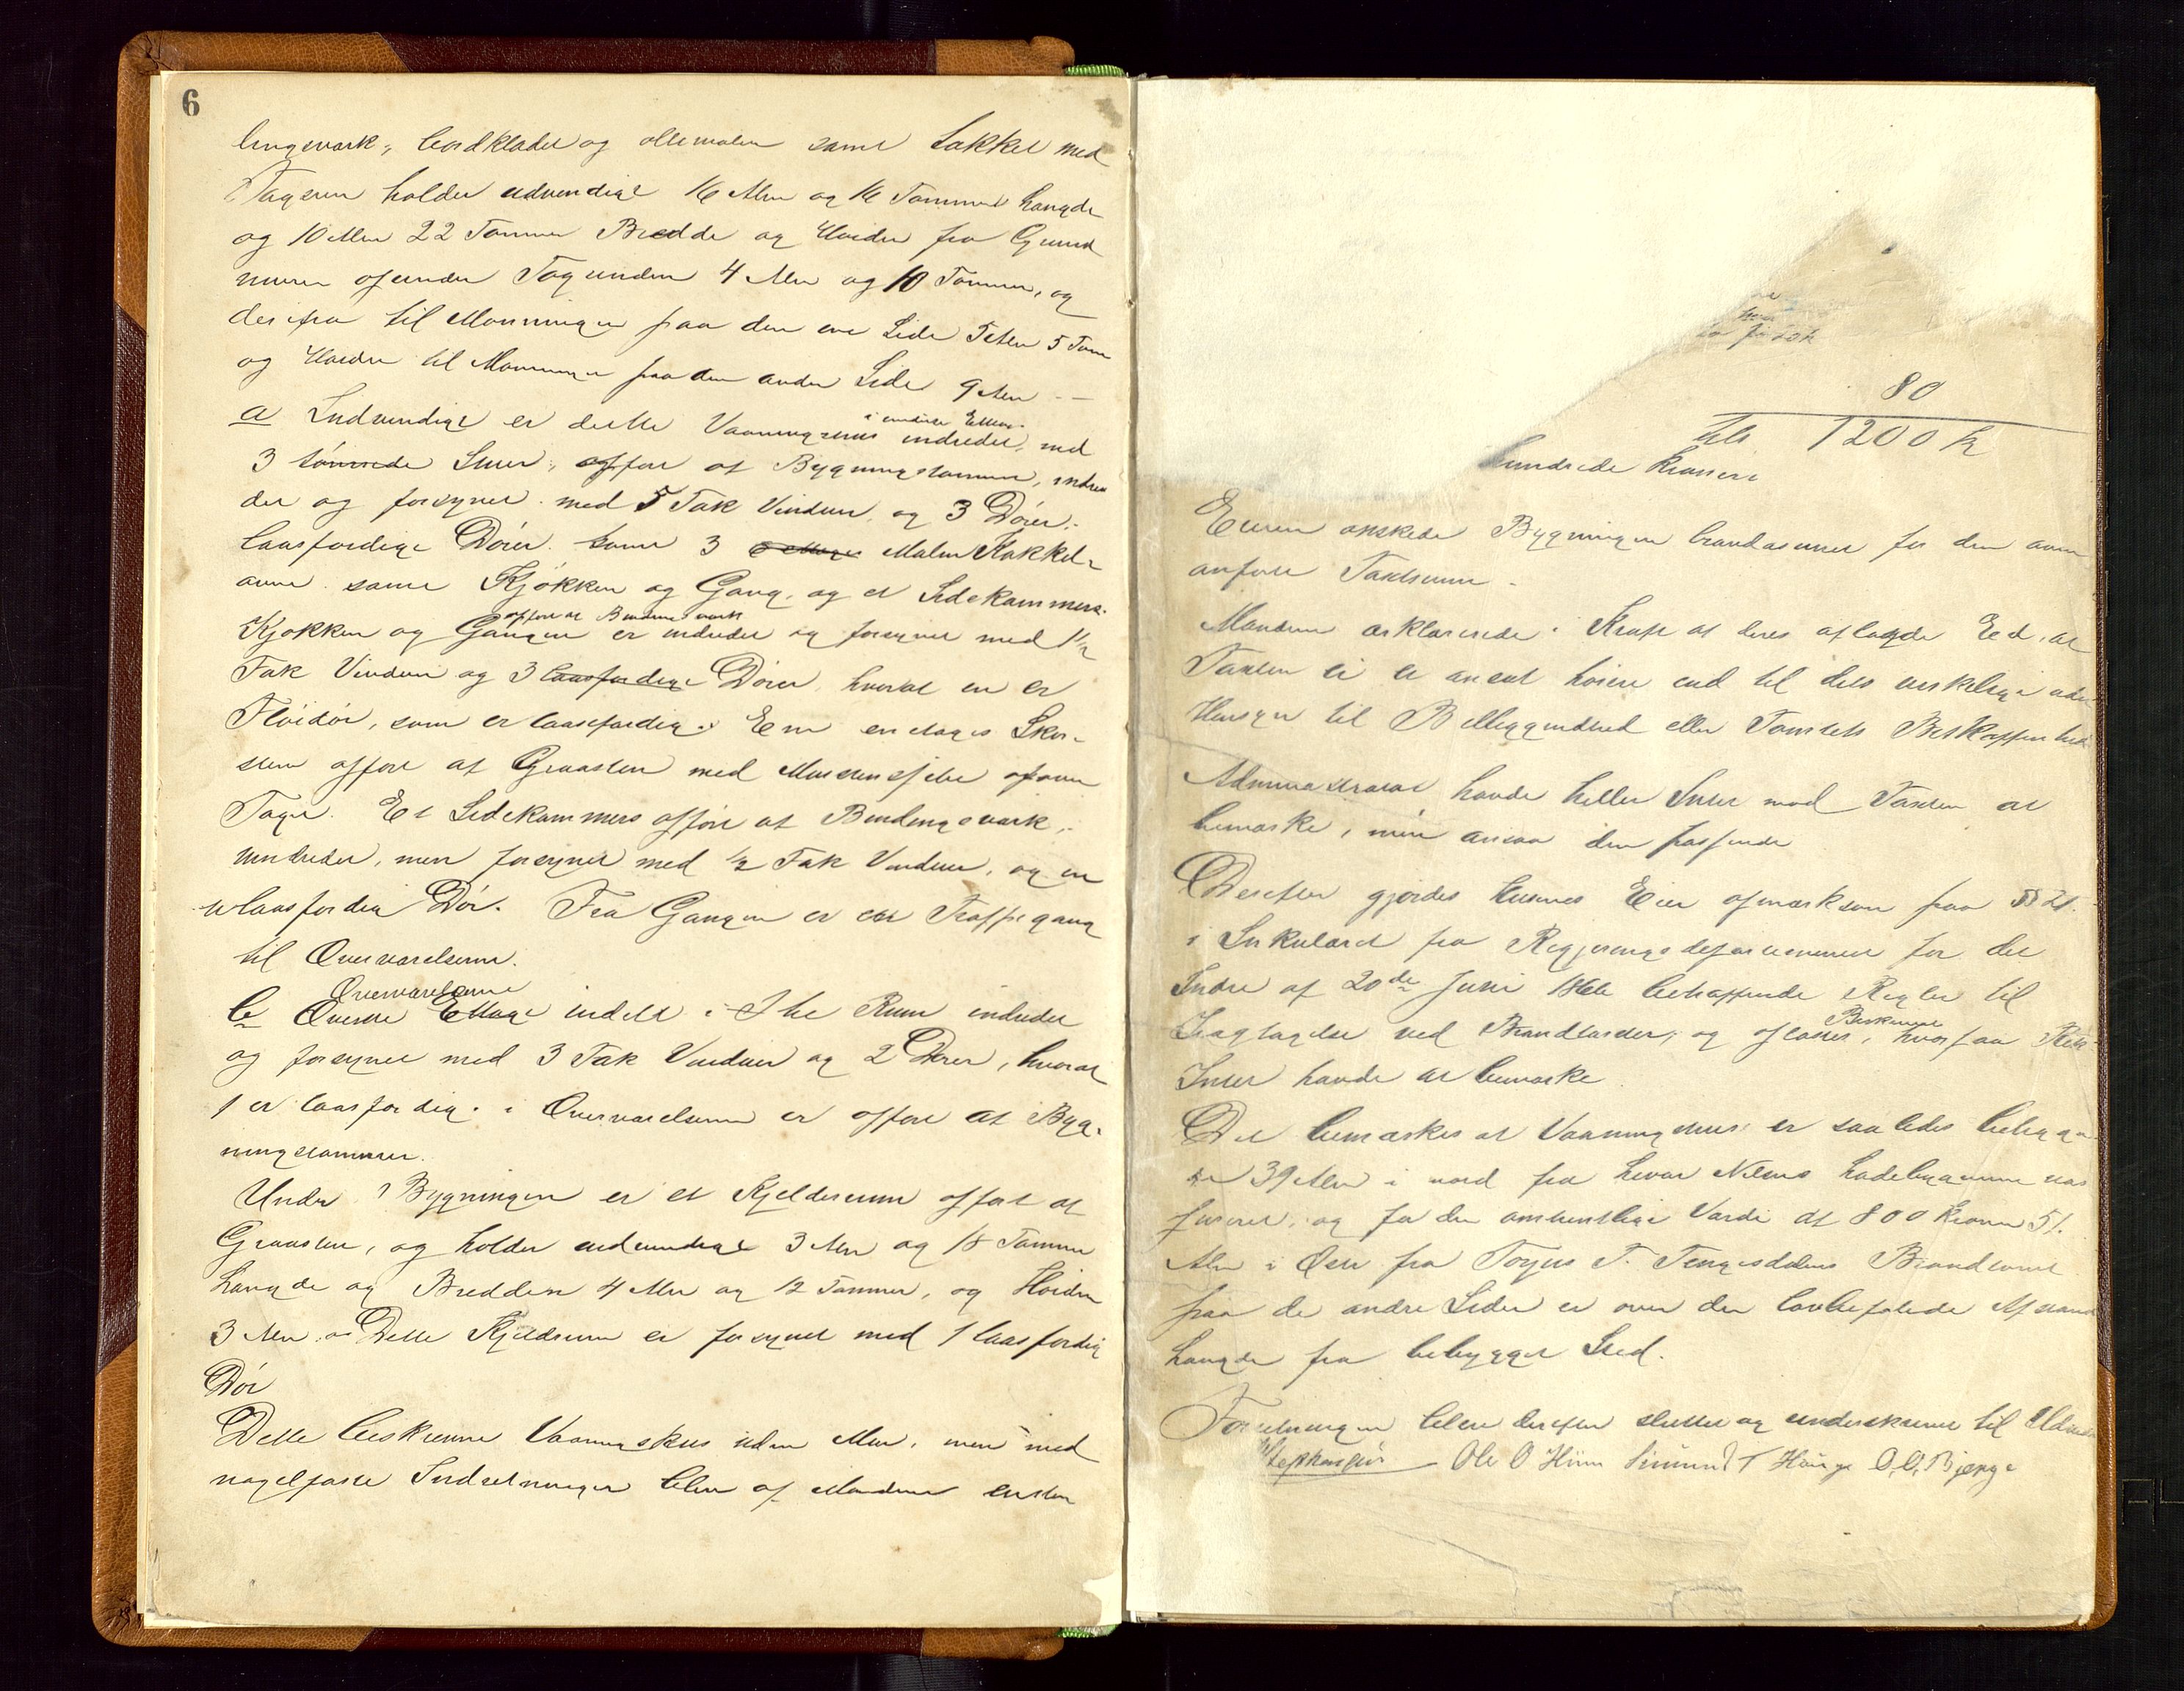 6
lingværk, bordklædet og oliemalen samt Takket med
Tagsten holder udvendigt 16 Alen og 16 Tommers Længde
og 10 Alen 22 Tommer Bredde og Høiden fra Grund
muren op under Tag enden 4 Alen og 10 Tommer, og
derifra til Mønningen paa den ene Side 5 Alen 5 Tom
og Høiden til Mønningen paa den anden Side 9 Alen
a Indvendigt er dette Vaaningshus i underste Etten. indredet, med
3 tømrede Stuer, opført af Bygningstømmer, indre
det og forsynet med 5 Fak Vinduer, og 3 Dører.
laasfærdige Dører. samt 3 Malm Kakkel-
ovne samt Kjøkken og Gang, og et Sidekammers.
Kjøkken og Gangen opført at Bindingsværk er indredet og forsynet med 1 1/2
Fak Vinduer og 3 laasfærdige Dører, hvoraf en er
Fløidør, som er laasfærdig. En en etages Skor-
sten opført af Graasten med Mursteinspibe ofover
Taget. Et Sidekammers opført at Bindingsværk,
uindredet, men forsynet med 1/2 Fak Vinduer, og en
ulaasfærdig Dør. Fra Gangen er en Trappegang
til Overværelserne.
Overværelserne
b Øverste Ettage indelt i 3 Rum indredet
og forsynet med 3 Fak Vinduer og 2 Dører, hvoraf
1 er laasfærdig. i Overværelserne er opført at Byg-
ningstømmer.
Under Bygningen er et Kjelderrum opført at
Graasten, og holder udvendigt 3 Alen og 18 Tommer
Længde og Bredden 4 Alen og 12 Tommer, og Høiden
3 Alen. Dette Kjelderrum er forsynet med 1 laasfærdig
Dør
Dette beskrevne Vaaningshus uden Mur, men med
nagelfaste Indretninger blev af Mændene ansten
80
Tils 1200 kr
hundrede kroner
Eieren ønskede Bygningen brandassurer for den oven
anførte Taxtsum.
Mændene erklærerede i Kraft at deres aflagde Eed, at
Taxten ei er ansat høiere end til dets virkelige uden
Hensyn til Belliggendhed eller Tomtets Beskaffenhed
Administrator havde heller Intet mod Taxten at
bemærke, men ansaa den passende
Derefter gjordes husenes Eier opmærksom paa § 21.
i Sirkulæret fra Regjeringsdepartementet for det
Indre af 20de Juni 1866 betræffende Regler til
Iagtagelse ved Brandtaxter, og oplæstes Beskrivel, hvorpaa
Intet havde at bemærke
Det bemærkes at Vaaningshus er saaledes bebygg
er 39 Alen i nord fra Nilsens Ladebygning
og for den omtrentlige Værdi af 800 kroner 51.
Alen i Øst fra Torjus T. Tengesdalens Brandtomt
paa de andre Sider er over den lovbefalede Afstand
Længde fra bebygget Sted.
Forretningen blev derefter sluttet og underskrevet til
Ole O Hiim Simund T Hauge O. O. Bjerge